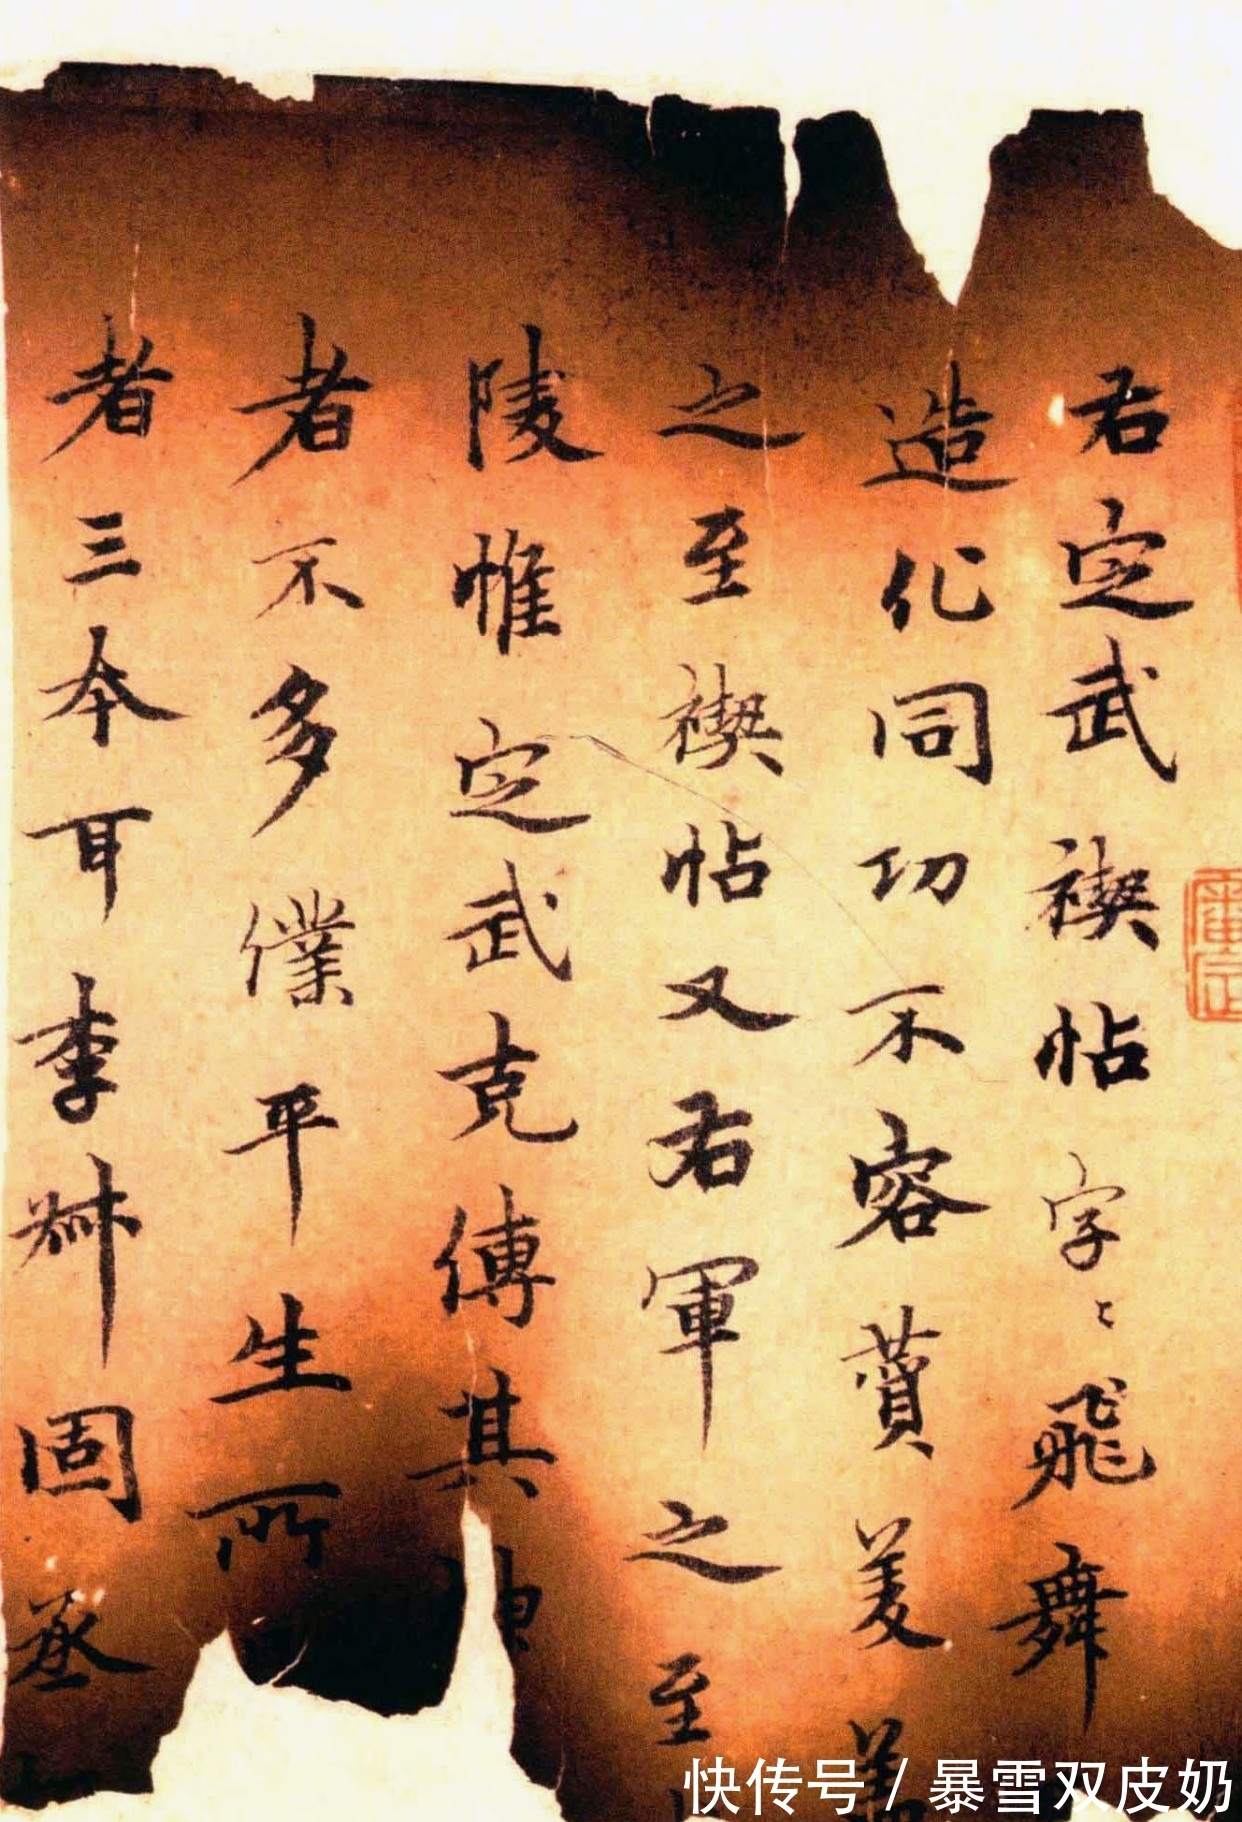 右定武禊帖字〻飛舞
造化同功不容賛美
之至禊帖又右軍之至
陵惟定武克傳其神
者不多僕平生所
者三本耳李叔固丞
快传号 / 暴雪双皮奶